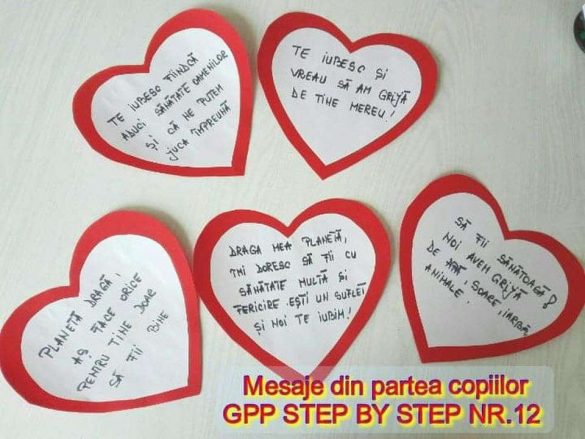 TE IUBESC FIINDCĂ
ADUCI SĂNĂTATE OAMENILOR
ȘI CĂ NE PUTEM
JUCA ÎMPREUNĂ
TE IUBESC ȘI
VREAU SĂ AM GRIJĂ
DE TINE MEREU!
PLANETĂ DRAGĂ,
AȘ FACE ORICE
PENTRU TINE DOAR
SĂ FII BINE
DRAGA MEA PLANETĂ,
ÎMI DORESC SĂ FII CU
SĂNĂTATE MULTĂ ȘI
FERICIRE. EȘTI UN SUFLET
ȘI NOI TE IUBIM!
SĂ FII SĂNĂTOASĂ!
NOI AVEM GRIJĂ
DE APĂ, SOARE, IARBĂ,
ANIMALE.
Mesaje din partea copiilor
GPP STEP BY STEP NR.12